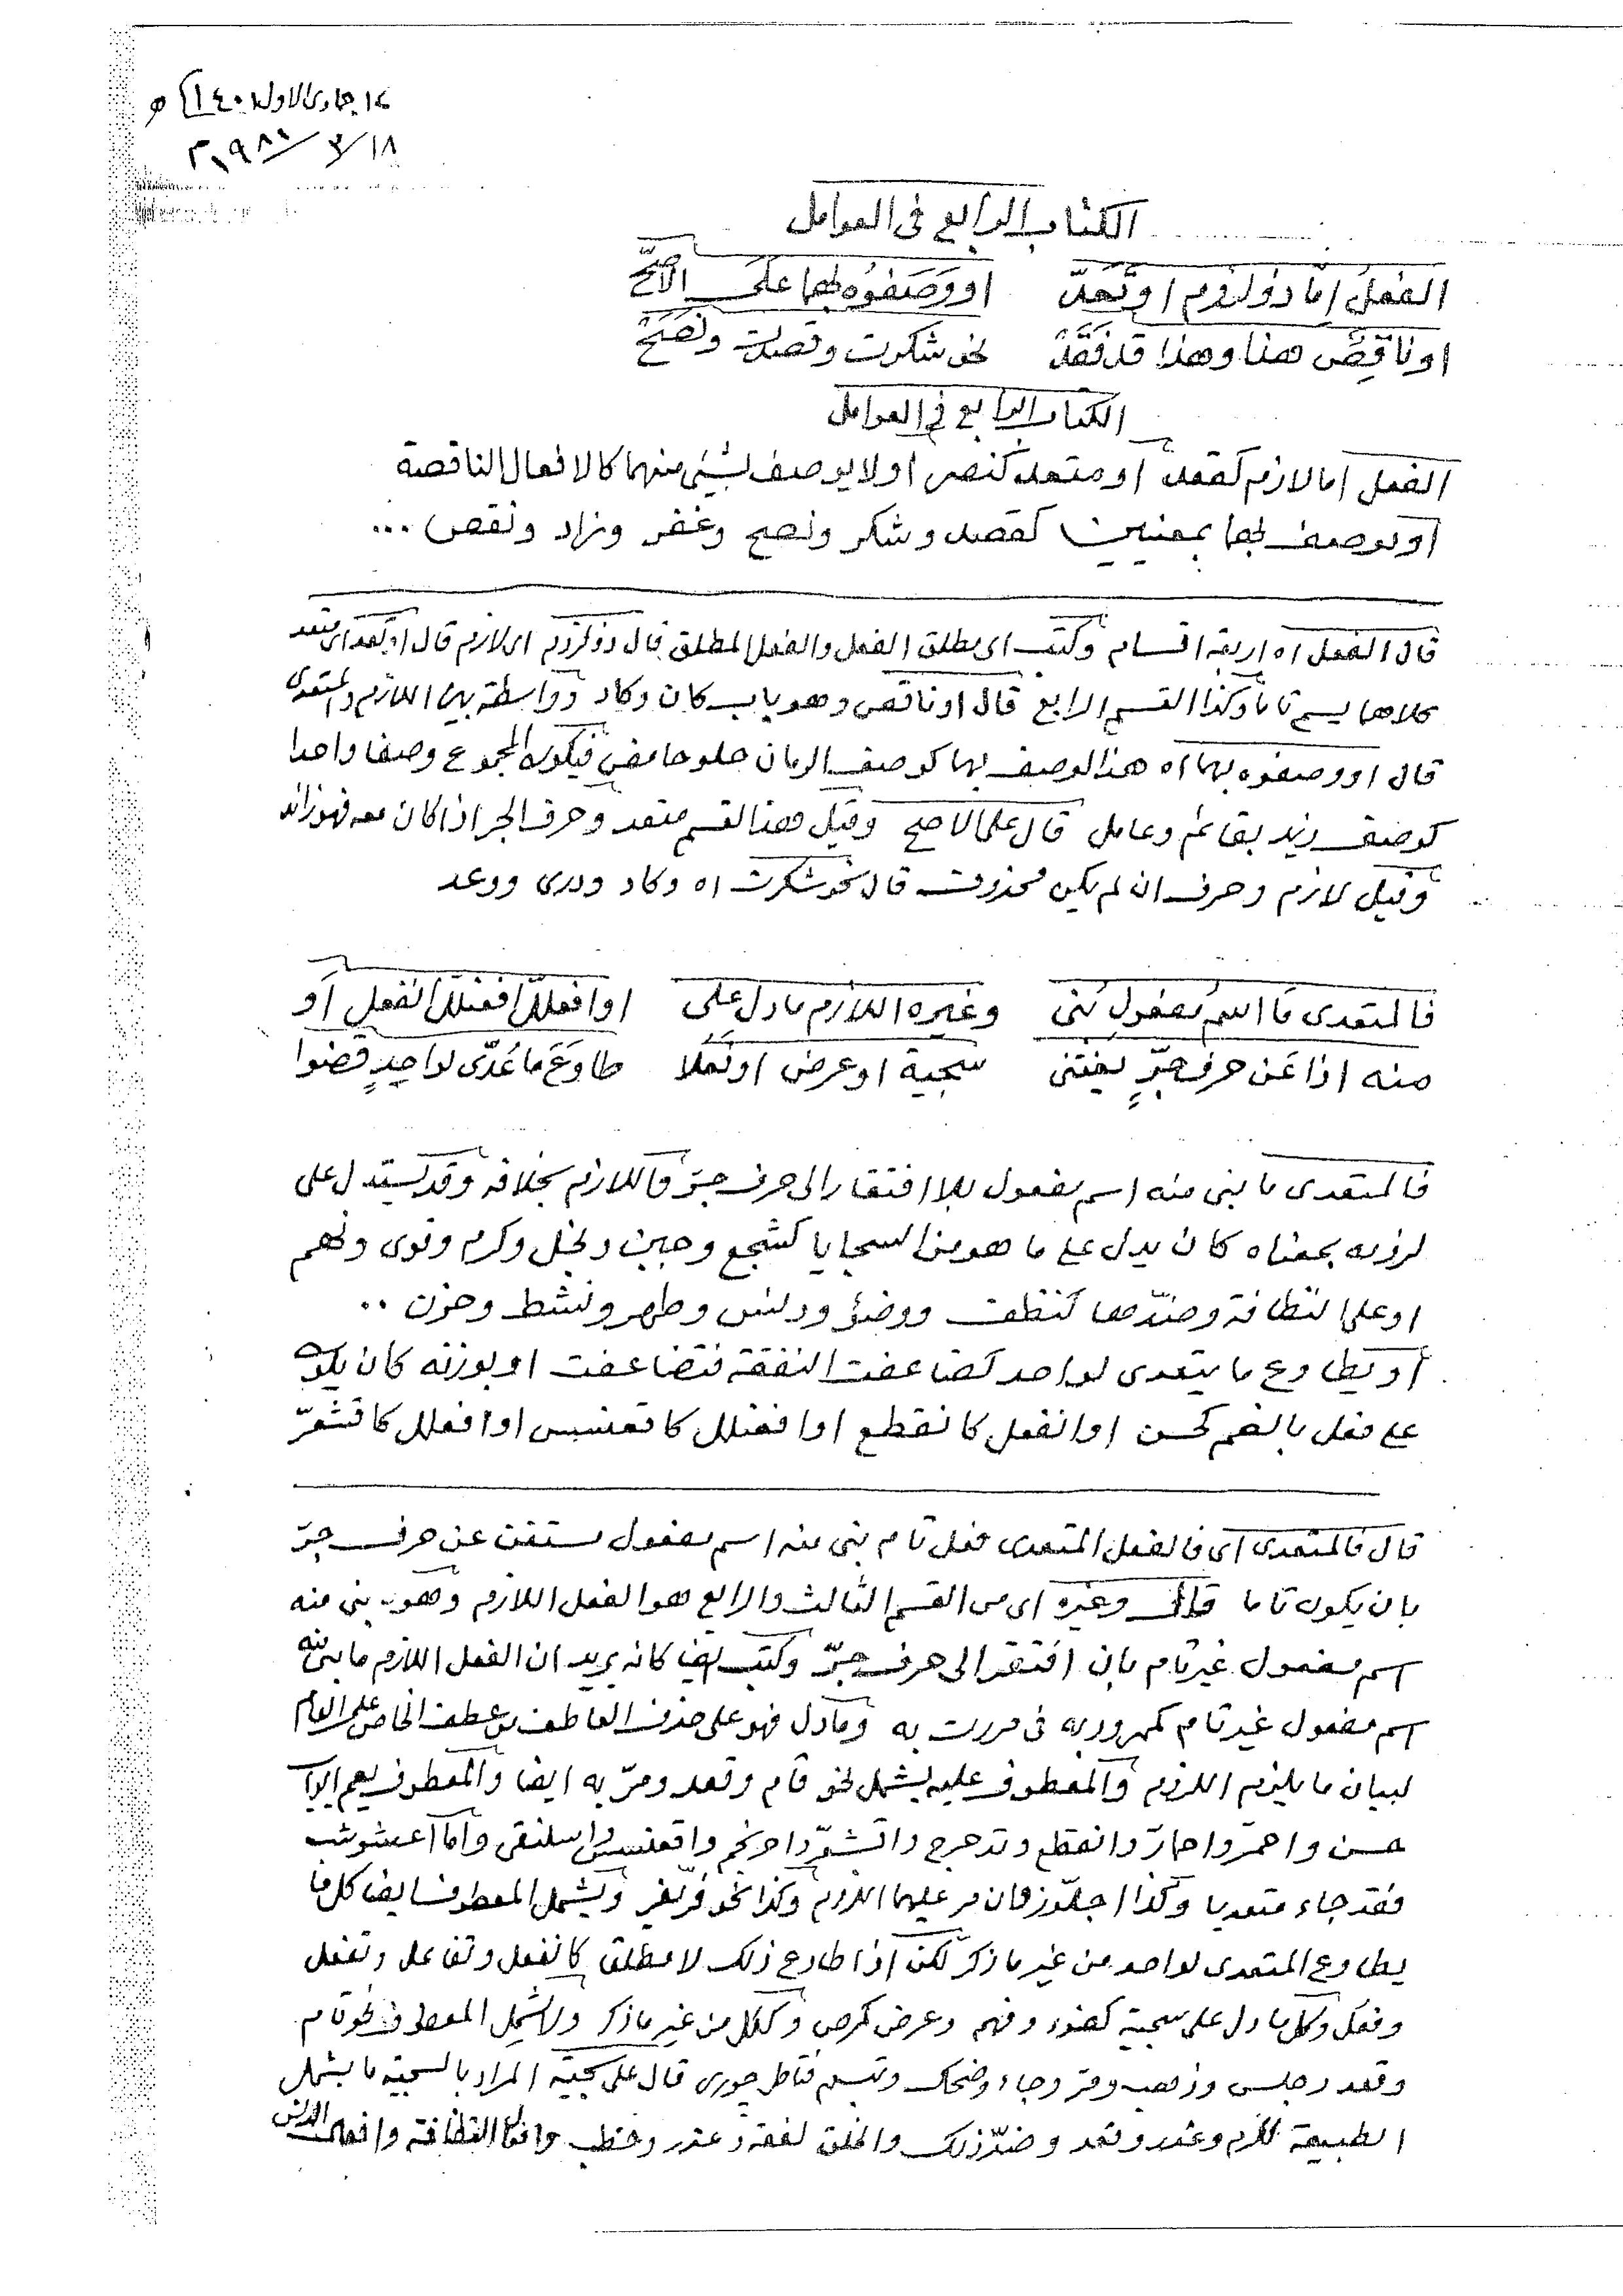 ١٢ جمادى الاولى ١٤٠١ هـ
١٨/٣/١٩٨١ م
الكتاب الرابع فى العوامل
الفعلُ امّا ذو لزوم او تَعَدّ او وَصَفوُه بهما عَلَى الاَصَحّ
او ناقِصٌ هذا وهذا قد فَقَدْ نحو شكرت وقصدت ونَصَحْ
الكتاب الرابع فى العوامل
الفعل اما لازم كقعد او متعد كنصر او لا يوصف بشيئ منهما كالافعال الناقصة
او يوصف بهما بمعنيين كقصد وشكر ونصح وغفر وزاد ونقص ...
قال الفعل اه اربعة اقسام وكتب اى مطلق الفعل والفعل المطلق قال ذو لزوم اى لازم قال او تعد اى متعد
كلاهما يسم تاما وكذا القسم الرابع قال او ناقص وهو باب كان وكاد وواسطة بين اللازم والمتعدى
قال او وصفوه بهما اه هذا الوصف بهما كوصف الرمان حلو حامض فيكون المجموع وصفا واحدا
كوصف زيد بقائم وعامل قال على الاصح وقيل هذا القسم متعد وحرف الجر اذا كان معه فهو زائد
وقيل لازم وحرف ان لم يكن محذوف قال نحو شكرت اه وكاد ودرى ووعد
فالمتعدى ما اسمُ مفعولٍ بُنى وغيره اللازم ما دل على او افعللّ افعنلل انفعل او
منه اذا عَن حرف جرٍّ يغتنى سجية او عرض او فَعُلا طاوَعَ ما عُدّى لواحِدٍ قضوا
فالمتعدى ما بنى منه اسم مفعول بلا افتقار الى حرف جرّ فاللازم بخلافه وقد يستدل على
لزومه بمعناه كان يدل على ما هو من السجايا كشجع وجبن وبخل وكرم وقوى ونهم
او على النظافة وضدّها كنظف ووضؤ ودنس وطهر ونشط وحزن ..
او يطاوع ما يتعدى لواحد كضاعفت النفقة فتضاعفت او بوزنه كان يكون
على فعل بالضم كحسن او انفعل كانقطع او افعنلل كاقعنسس او افعلل كاقشعرّ
قال فالمتعدى اى فالفعل المتعدى فعل تام بنى منه اسم مفعول مستغن عن حرف جرّ
بان يكون تاما قال وغيره اى من القسم الثالث والرابع هو الفعل اللازم وهو بنى منه
اسم مفعول غير تام بان افتقر الى حرف جرّ وكتب ايضا كانه يريد ان الفعل اللازم ما بنى منه
اسم مفعول غير تام كممرور به فى مررت به وما دل فهو على حذف العاطف من عطف الخاص على العام
لبيان ما يلزم اللزوم والمعطوف عليه يشمل نحو قام وقعد ومرّ به ايضا والمعطوف يعم
حسن واحمرّ واحمارّ وانقطع وتدحرج واقشعرّ واحرنجم واقعنسس واسلنقى واما اعشوشب
فقد جاء متعديا وكذا اجلوّز فان مر عليهما اللزوم وكذا نحو فرّ يفر ويشمل المعطوف ايضا كل ما
يطاوع المتعدى لواحد من غير ما ذكر لكن اذا طاوع ذلك لا مطلق كانفعل وتفاعل وتفعل
وفعل وكل ما دل على سجية وفهم وعرض كمرض وككل من غير ما ذكر ولا يشمل المعطوف نحو قام
وقعد وجلس وذهب وفر وجاء وضحك وتبسم فتأمل جورى قال على سجية المراد بالسجية ما يشمل
الطبيعة ككرم وضدّ ذلك والخلق وخطب وافعال النظافة وافعال الدنس